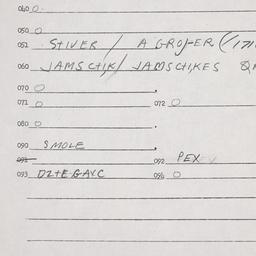 040 O
050 O
051 STIVER / A GROJER (/171
060 JAMSCHIK/ JAMSCHIKES &
070 O
071 O 072 O
080 O
090 SMOLE
091 092 PEX
093 DZTEGAVC 096 O